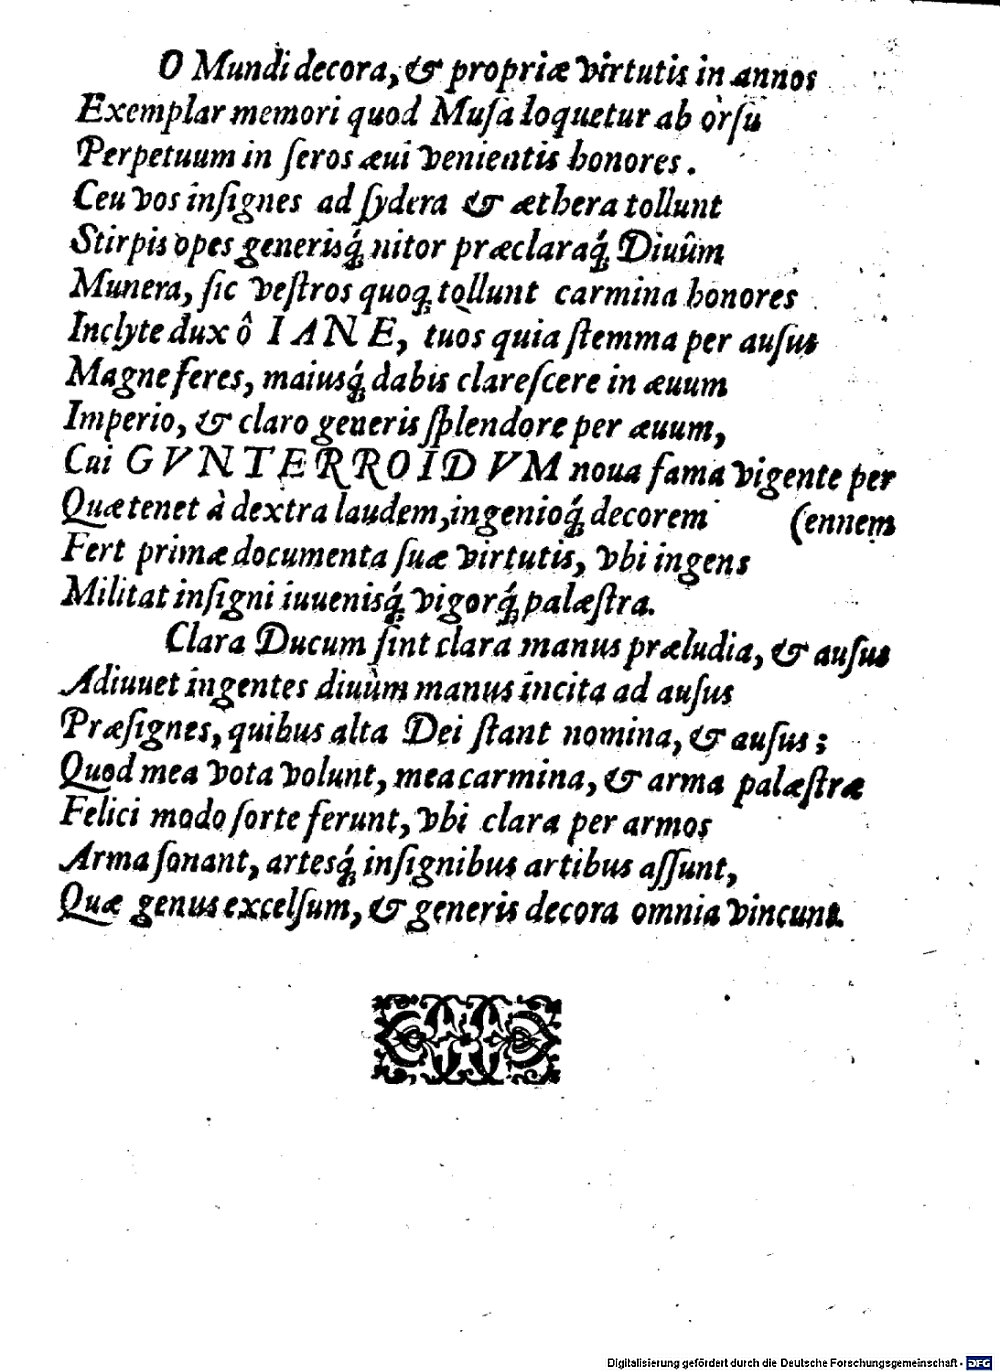 O Mundi decora, & propriæ virtutis in annos
Exemplar memori quod Musa loquetur ab orsu
Perpetuum in seros æui venientis honores.
Ceu vos insignes ad sydera & æthera tollunt
Stirpis opes generisq́; nitor præclaraq́; Diuûm
Munera, sic vestros quoq; tollunt carmina honores
Inclyte dux ô IANE, tuos quia stemma per ausus
Magne feres, maiusq́; dabis clarescere in æuum
Imperio, & claro generis splendore per æuum,
Cui GVNTERRODIVM noua fama vigente per
Quæ tenet à dextra laudem, ingenioq́; decorem (ennem
Fert primæ documenta suæ virtutis, vbi ingens
Militat insigni iuuenisq́; vigorq́; palæstra.
Clara Ducum sint clara manus præludia, & ausus
Adiuuet ingentes diuûm manus incita ad ausus
Præsignes, quibus alta Dei stant nomina, & ausus;
Quod mea vota volunt, mea carmina, & arma palæstræ
Felici modo sorte ferunt, vbi clara per armos
Arma sonant, artesq́; insignibus artibus assunt,
Quæ genus excelsum, & generis decora omnia vincunt.
Digitalisierung gefördert durch die Deutsche Forschungsgemeinschaft - DFG